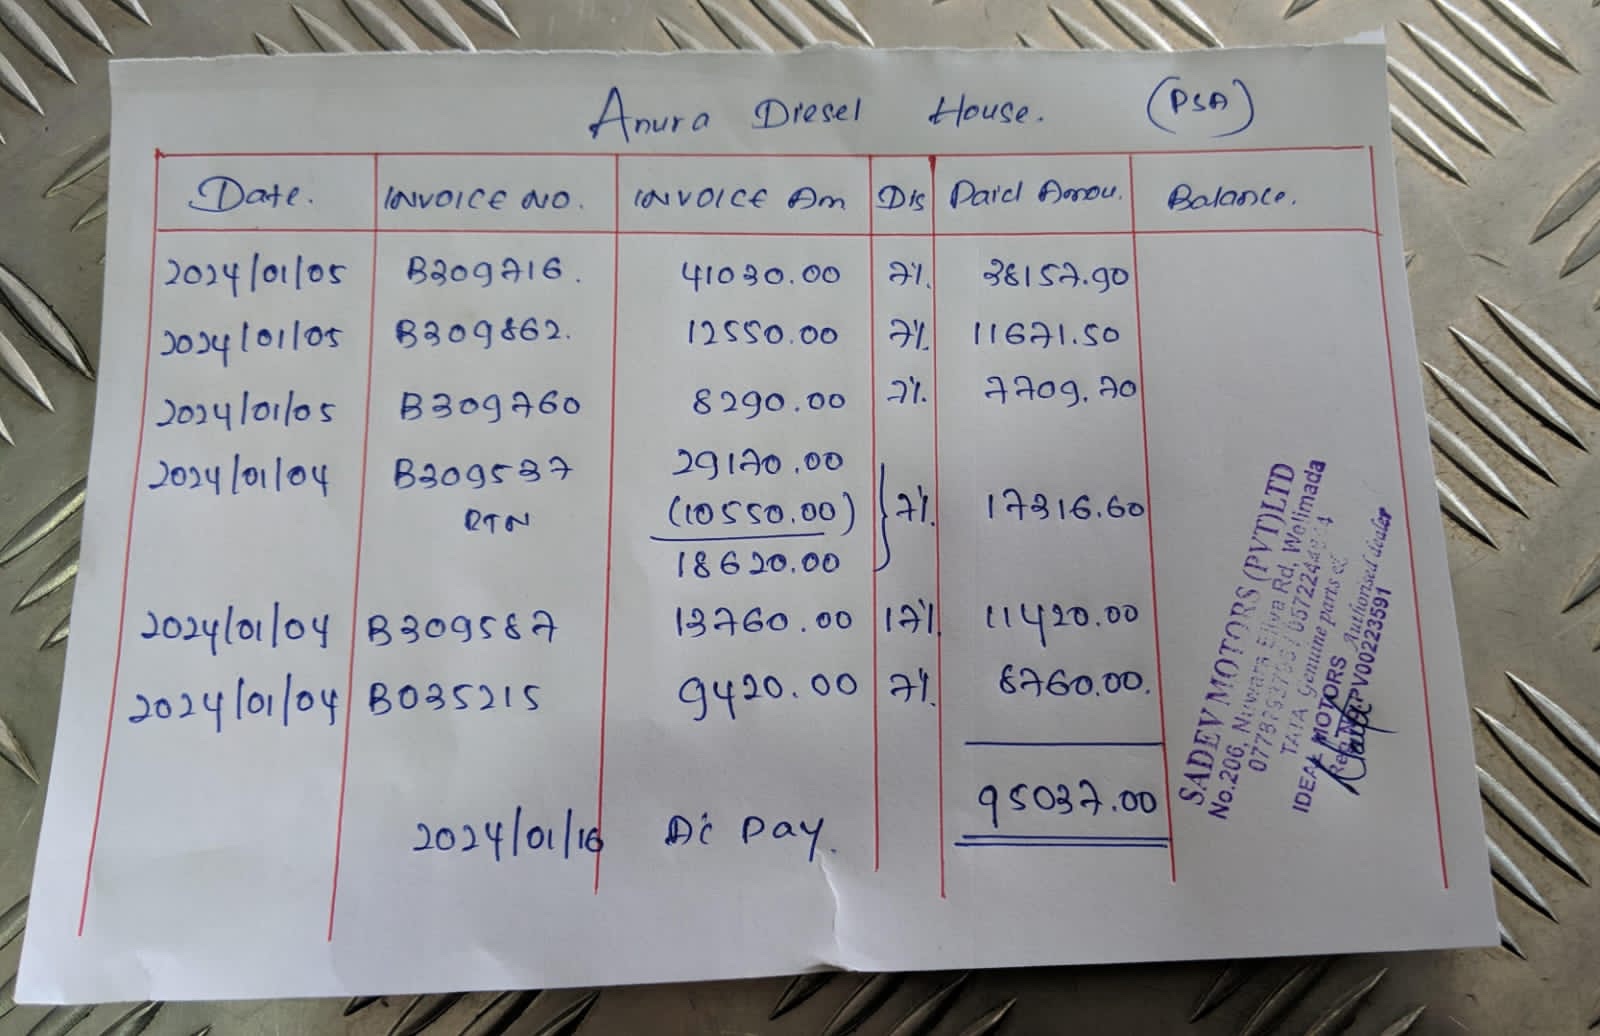 Anura Diesel House. (PSA)
Date. INVOICE NO. INVOICE Am Dis Paid Amou. Balance.
2024/01/05 B309716. 41030.00 7% 38157.90
2024/01/05 B309862. 12550.00 7% 11671.50
2024/01/05 B309760 8290.00 7% 7709.70
2024/01/04 B309537 29170.00
RTN (10550.00) 7% 17316.60
18620.00
2024/01/04 B309587 13760.00 17% 11420.00
2024/01/04 B035215 9420.00 7% 8760.00.
95037.00
2024/01/16 A/c Pay.
SADEV MOTORS (PVT)LTD
No.206, Nuwara Eliya Rd, Welimada
TATA Genuine parts &
IDEAL MOTORS Authorised dealer
Reg. No PV00223591